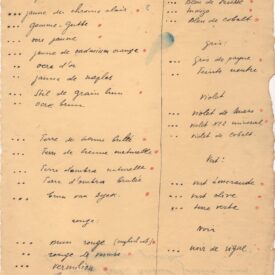 ... jaune de chrome clair
... gomme-gutte
... or jaune
... jaune de cadmium orange
.. ocre d'or
.. jaune de naples
... stil de grain brun
.. ocre brun
... Terre de sienne brûlée
... Terre de sienne naturelle
... Terre d'ombra naturelle
.. Terre d'ombra brulée
... brun van Dyck
rouge:
... brun rouge
... rouge de
... vermillon
... Bleu de Prusse
... Indigo
... Bleu de cobalt
Gris:
... Gris de payne
... teinte neutre
Violet
... violet de mars
... violet minéral
.. violet de cobalt
Vert:
... vert émeraude
... vert olive
... terre verte
Noir
... noir de vigne